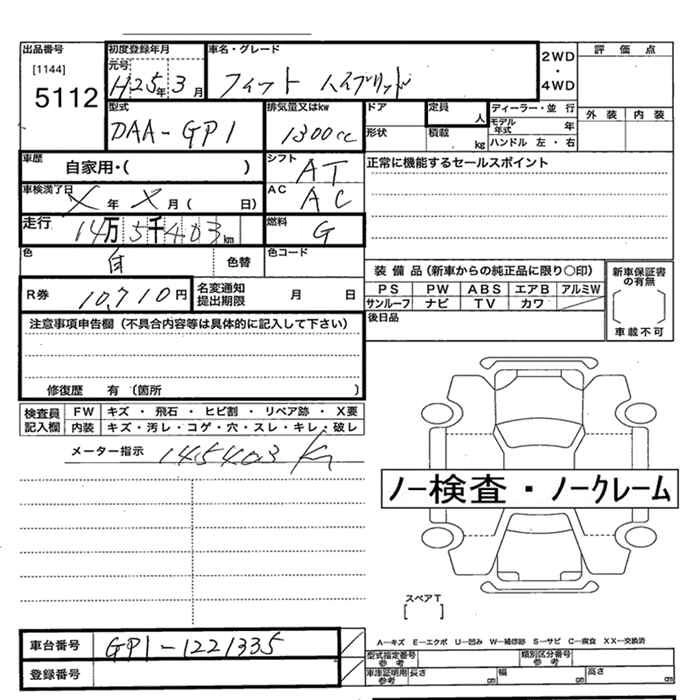 出品番号 初度登録年月 車名・グレード 2WD・4WD 評価点
[1144] 元号 H25年3月 フィット ハイブリッド
5112 外装 内装
型式 排気量又はkw ドア 定員 人 ディーラー・並行
DAA-GP1 1300cc 形状 積載 kg モデル年式 年
ハンドル 左・右
車歴 自家用・( ) シフト AT 正常に機能するセールスポイント
車検満了日 X年X月( 日) AC AC
走行 14万5千403km 燃料 G
色 白 色替 色コード 装備品(新車からの純正品に限り○印) 新車保証書の有無
R券 10,710円 名変通知提出期限 月 日 PS PW ABS エアB アルミW
サンルーフ ナビ TV カワ
[ ]
車載不可
注意事項申告欄(不具合内容等は具体的に記入して下さい) 後日品
修復歴 有 (箇所 )
検査員記入欄 FW キズ・飛石・ヒビ割・リペア跡・X要
内装 キズ・汚レ・コゲ・穴・スレ・キレ・破レ
メーター指示 145403 Km
ノー検査・ノークレーム
スペアT
[ ]
車台番号 GP1-1221335 A―キズ E―エクボ U―凹み W―補修跡 S―サビ C―腐食 XX―交換済
型式指定番号参考 類別区分番号参考
登録番号 車庫証明用参考 長さ cm 幅 cm 高さ cm